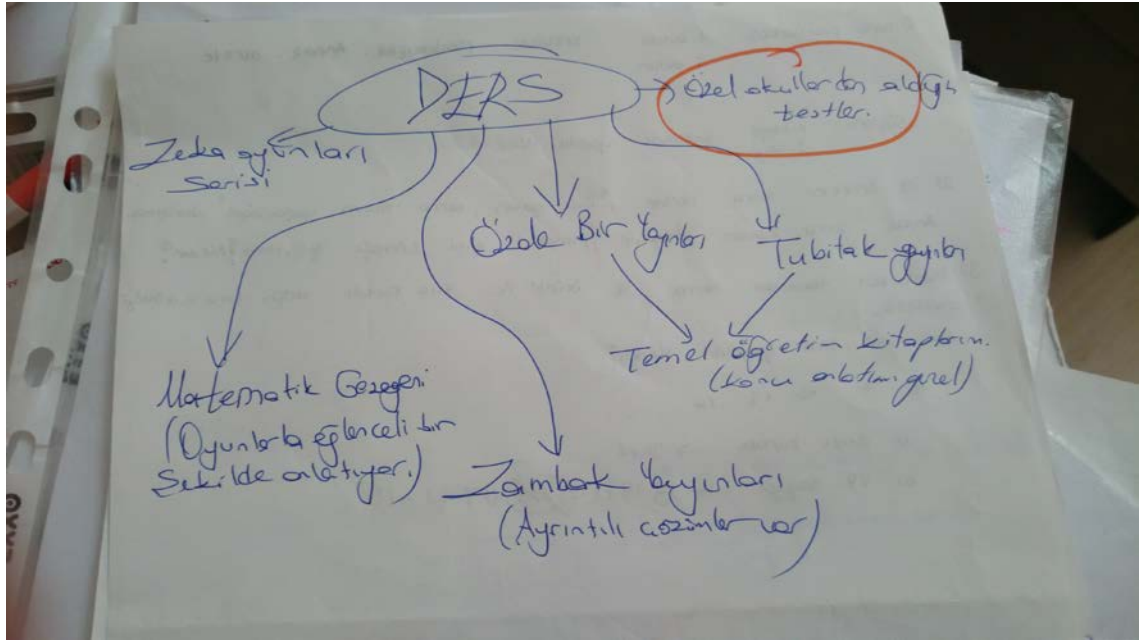 DERS
Özel okullardan aldığım
testler.
Zeka oyunları
Serisi
Özde Bir Yayınları
Tubitak yayınları
Temel öğretim kitapların.
(konu anlatımı güzel)
Matematik Gezegeni
(Oyunlarla eğlenceli bir
Şekilde anlatıyor.)
Zambak Yayınları
(Ayrıntılı çözümler var)